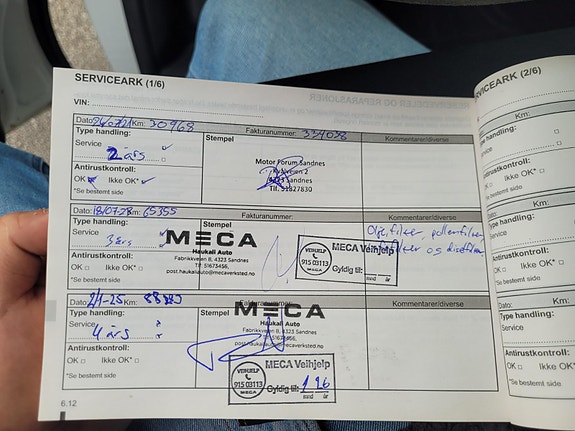 SERVICEARK (1/6)
VIN:
Dato: 24/07/21 Km: 30968 Fakturanummer: 337038 Kommentarer/diverse
Type handling: Stempel
Service 2 års
Motor Forum Sandnes
4323 Sandnes
Tlf. 51827830
Antirustkontroll:
OK Ikke OK*
*Se bestemt side
Dato: 18/07-23 Km: 65355 Fakturanummer: Kommentarer/diverse
Type handling: Stempel
Service 3 års
Olje, filter, pollenfilter,
og dieselfilter
MECA
Haukali Auto
Fabrikkveien 8, 4323 Sandnes
Tlf: 51673456,
post.haukaliauto@mecaverksted.no
VEIHJELP
915 03113
MECA
MECA Veihjelp
Gyldig til:
mnd år
Antirustkontroll:
OK Ikke OK*
*Se bestemt side
Dato: Km: Fakturanummer: Kommentarer/diverse
Type handling: Stempel
Service 4 års
MECA
Haukali Auto
Fabrikkveien 8, 4323 Sandnes
VEIHJELP
915 03113
MECA
MECA Veihjelp
Gyldig til: 1 26
mnd år
Antirustkontroll:
OK Ikke OK*
*Se bestemt side
6.12
SERVICEARK (2/6)
VIN:
Dato: Km:
Type handling:
Service
Antirustkontroll:
OK Ikke OK*
*Se bestemt side
Dato: Km:
Type handling:
Service
Antirustkontroll:
OK Ikke OK*
*Se bestemt side
Dato: Km:
Type handling:
Service
Antirustkontroll:
OK Ikke OK*
*Se bestemt side